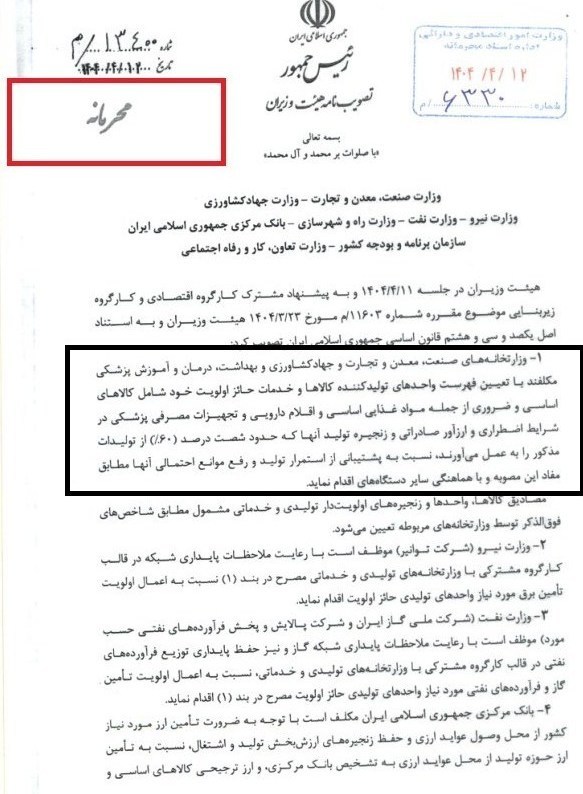 جمهوری اسلامی ایران
رئیس جمهور
تصویب نامه هیئت وزیران
شماره ۱۳۶۰۰/م
تاریخ ۱۴۰۴/۰۴/۱۲
محرمانه
وزارت امور اقتصادی و دارائی
اداره اسناد محرمانه
۱۴۰۴/۴/۱۲
شماره: ۶۳۳۰/م
بسمه تعالی
«با صلوات بر محمد و آل محمد»
وزارت صنعت، معدن و تجارت – وزارت جهادکشاورزی
وزارت نیرو – وزارت نفت – وزارت راه و شهرسازی – بانک مرکزی جمهوری اسلامی ایران
سازمان برنامه و بودجه کشور – وزارت تعاون، کار و رفاه اجتماعی
هیئت وزیران در جلسه ۱۴۰۴/۴/۱۱ و به پیشنهاد مشترک کارگروه اقتصادی و کارگروه
زیربنایی موضوع مقرره شماره ۱۱۶۰۳/م مورخ ۱۴۰۴/۳/۲۳ هیئت وزیران و به استناد
اصل یکصد و سی و هشتم قانون اساسی جمهوری اسلامی ایران تصویب کرد:
۱- وزارتخانه‌های صنعت، معدن و تجارت و جهادکشاورزی و بهداشت، درمان و آموزش پزشکی
مکلفند با تعیین فهرست واحدهای تولیدکننده کالاها و خدمات حائز اولویت خود شامل کالاهای
اساسی و ضروری از جمله مواد غذایی اساسی و اقلام دارویی و تجهیزات مصرفی پزشکی در
شرایط اضطراری و ارزآور صادراتی و زنجیره تولید آنها که حدود شصت درصد (۶۰٪) از تولیدات
مذکور را به عمل می‌آورند، نسبت به پشتیبانی از استمرار تولید و رفع موانع احتمالی آنها مطابق
مفاد این مصوبه و با هماهنگی سایر دستگاه‌های اقدام نماید.
مصادیق کالاها، واحدها و زنجیره‌های اولویت‌دار تولیدی و خدماتی مشمول مطابق شاخص‌های
فوق‌الذکر توسط وزارتخانه‌های مربوطه تعیین می‌شود.
۲- وزارت نیرو (شرکت توانیر) موظف است با رعایت ملاحظات پایداری شبکه در قالب
کارگروه مشترکی با وزارتخانه‌های تولیدی و خدماتی مصرح در بند (۱) نسبت به اعمال اولویت
تأمین برق مورد نیاز واحدهای تولیدی حائز اولویت اقدام نماید.
۳- وزارت نفت (شرکت ملی گاز ایران و شرکت پالایش و پخش فرآورده‌های نفتی حسب
مورد) موظف است با رعایت ملاحظات پایداری شبکه گاز و نیز حفظ پایداری توزیع فرآورده‌های
نفتی در قالب کارگروه مشترکی با وزارتخانه‌های تولیدی و خدماتی، نسبت به اعمال اولویت تأمین
گاز و فرآورده‌های نفتی مورد نیاز واحدهای تولیدی حائز اولویت مصرح در بند (۱) اقدام نماید.
۴- بانک مرکزی جمهوری اسلامی ایران مکلف است با توجه به ضرورت تأمین ارز مورد نیاز
کشور از محل وصول عواید ارزی و حفظ زنجیره‌های ارزش‌بخش تولید و اشتغال، نسبت به تأمین
ارز حوزه تولید از محل عواید ارزی به تشخیص بانک مرکزی، و ارز ترجیحی کالاهای اساسی و